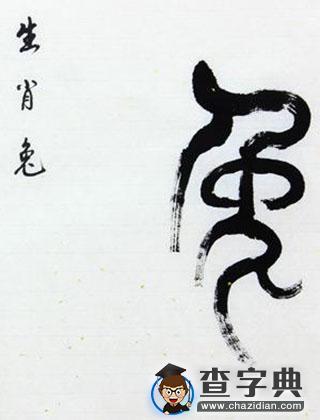 生肖兔
兔
查字典
www.chazidian.com